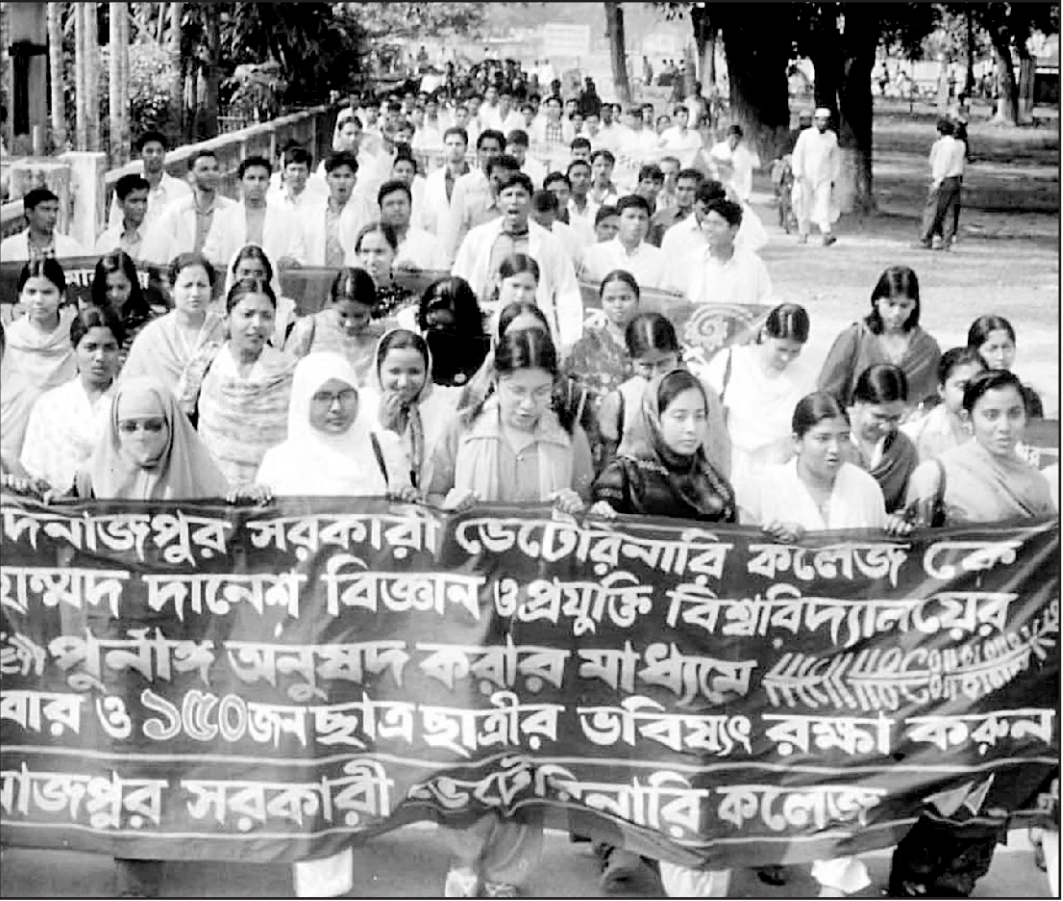 দিনাজপুর সরকারী ভেটেরিনারি কলেজ কে
হাম্মদ দানেশ বিজ্ঞান ও প্রযুক্তি বিশ্ববিদ্যালয়ের
পুর্নাঙ্গ অনুষদ করার মাধ্যমে
বার ও ১৫০ জন ছাত্র ছাত্রীর ভবিষ্যৎ রক্ষা করুন
নাজপুর সরকারী ভেটেরিনারি কলেজ